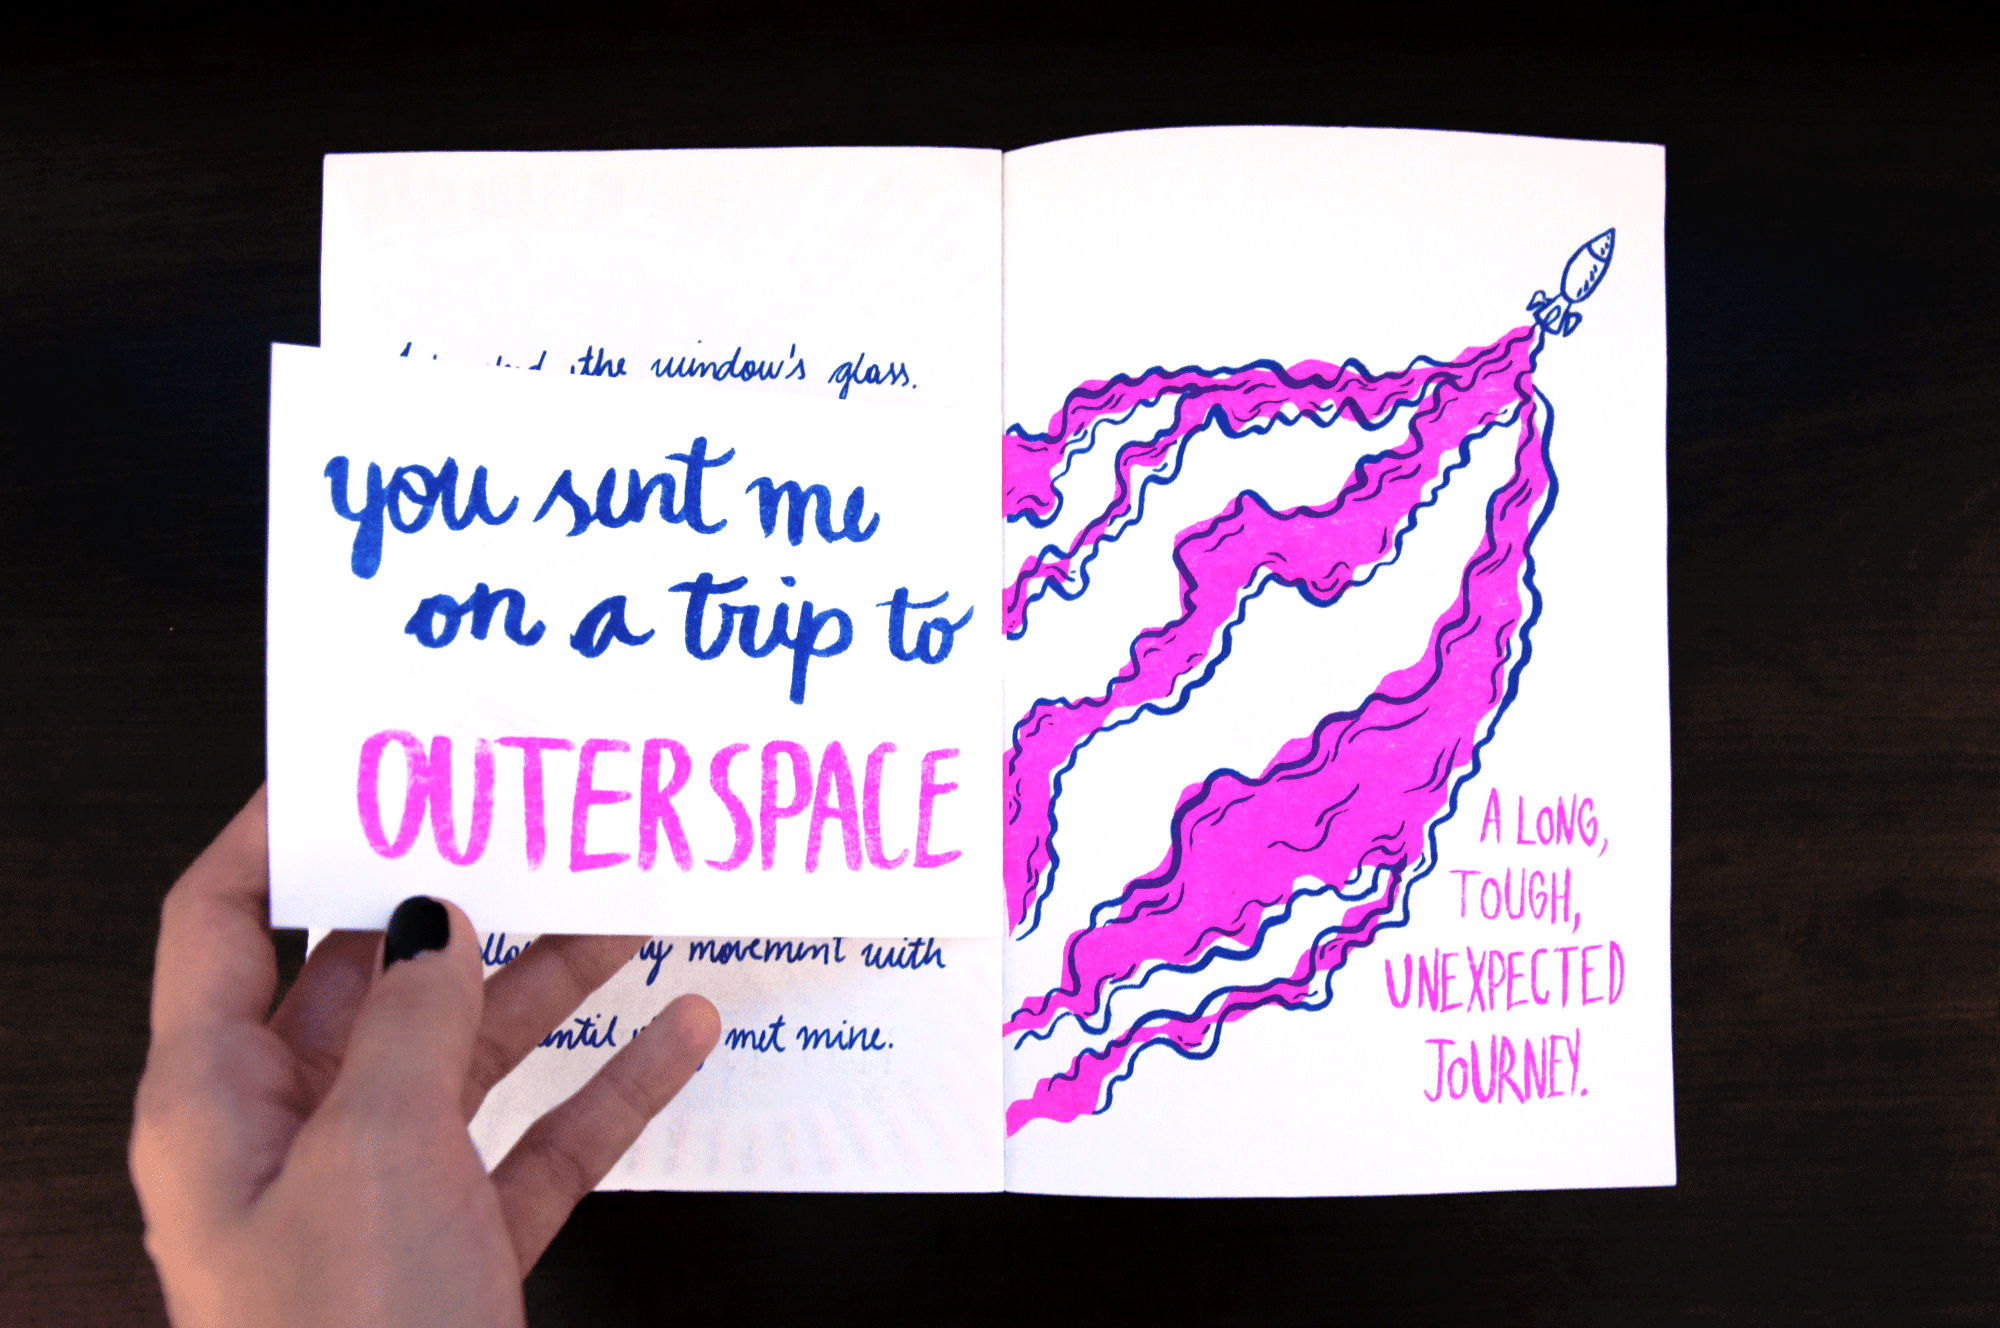 the window's glass.
you sent me
on a trip to
OUTERSPACE
movement with
until met mine.
A LONG,
TOUGH,
UNEXPECTED
JOURNEY.